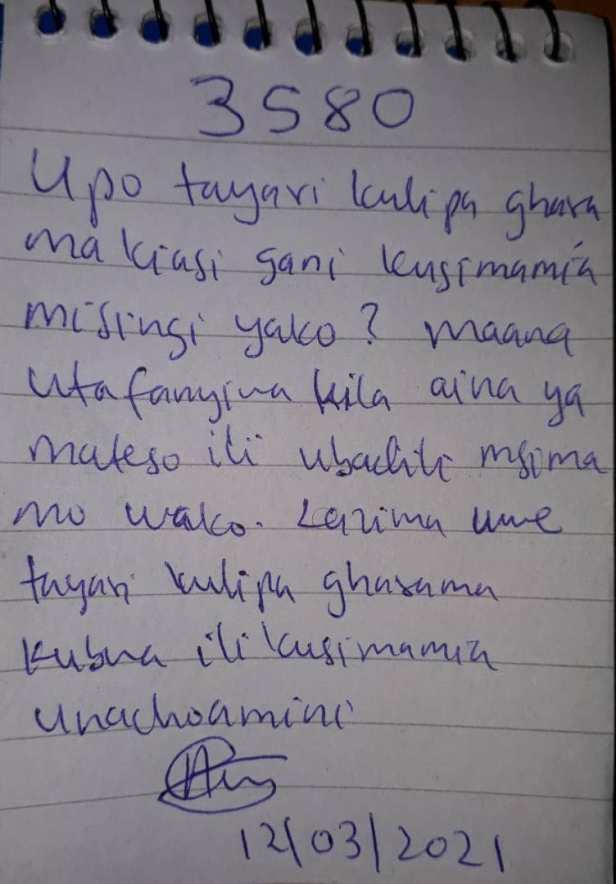 3580
Upo tayari kulipa ghara
ma kiasi gani kusimamia
misingi yako? maana
utafanyiwa kila aina ya
mateso ili ubadili msima
mo wako. Lazima uwe
tayari kulipa gharama
kubwa ili kusimamia
unachoamini
12/03/2021